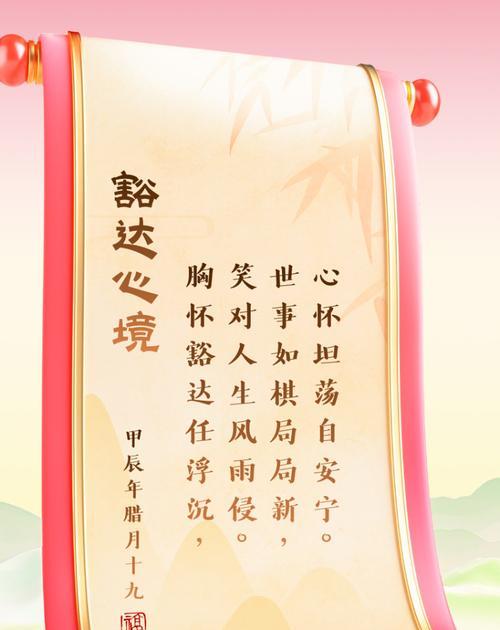 豁达心境
胸怀豁达任浮沉，
笑对人生风雨侵。
世事如棋局局新，
心怀坦荡自安宁。
甲辰年腊月十九
福